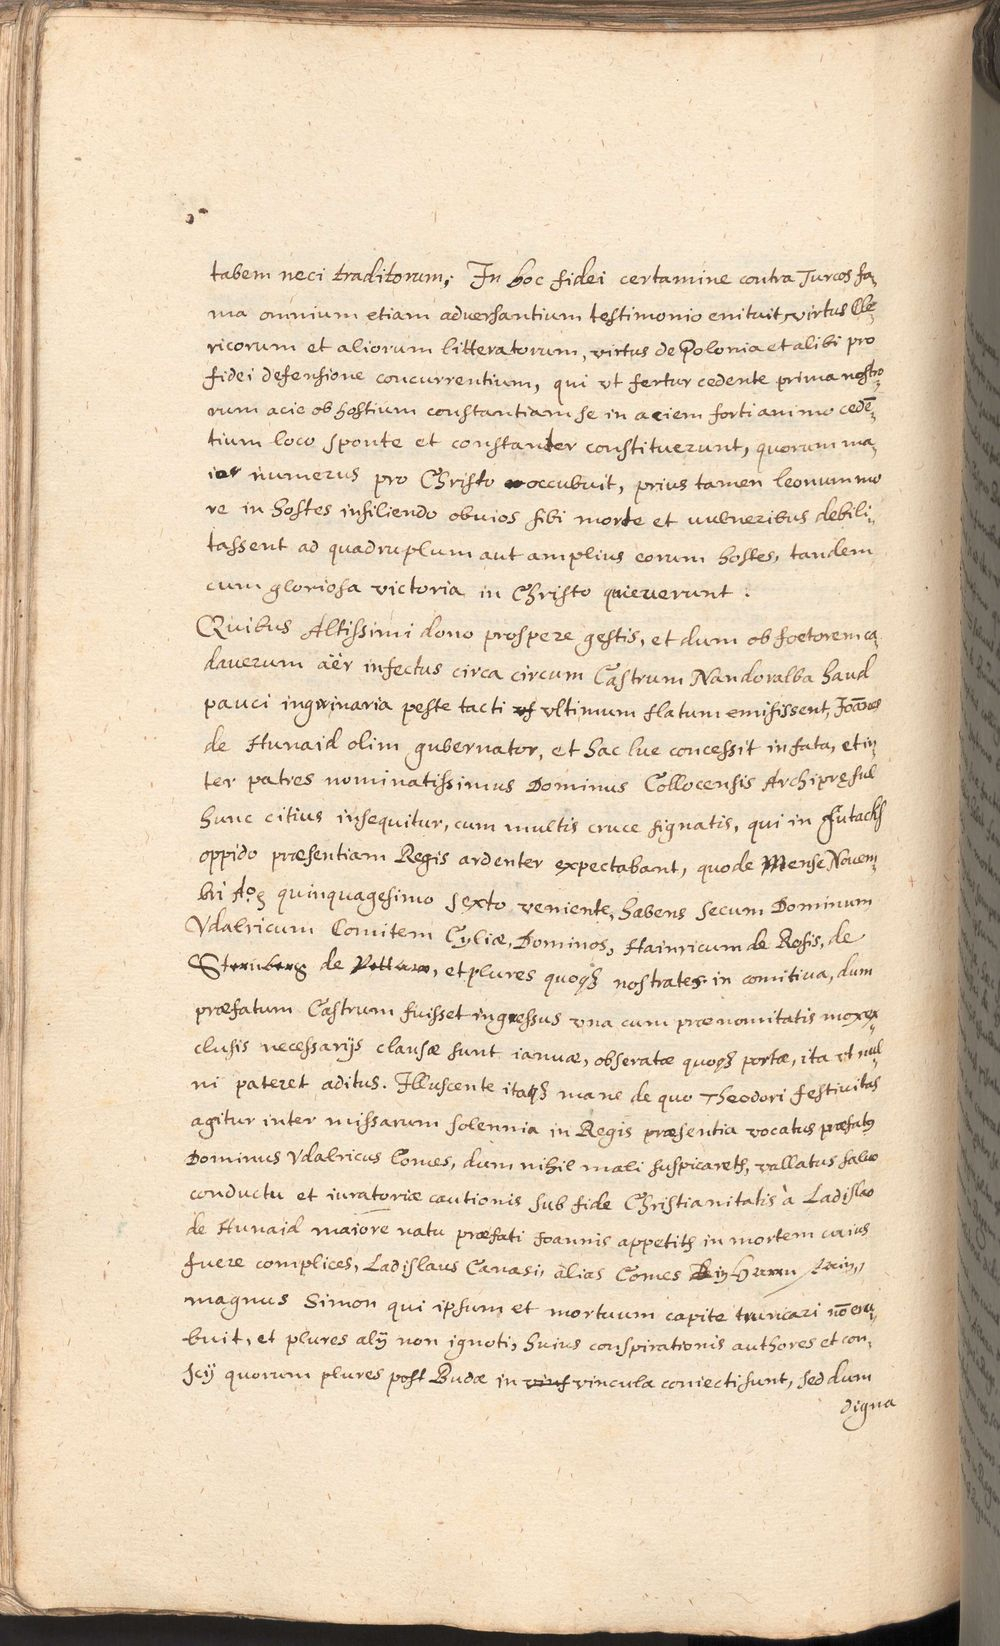 tabem neci traditorum; In hoc fidei certamine contra Turcos fa,
ma omnium etiam adversantium testimonio enituit virtus Cle,
ricorum et aliorum litteratorum, virtus de Polonia et alibi pro
fidei defensione concurrentium, qui ut fertur cedente prima nostro,
rum acie ob hostium constantiam se in aciem forti animo cedē,
tium loco sponte et constanter constituerunt, quorum ma,
ior numerus pro Christo occubuit, prius tamen leonum mo
re in hostes insiliendo obvios sibi morte et vulneribus debili,
tassent ad quadruplum aut amplius eorum hostes, tandem
cum gloriosa victoria in Christo quieverunt.
Quibus Altissimi dono prospere gestis, et dum ob foetorem ca,
daverum äër infectus circa circum Castrum Nandoralba haud
pauci ingwinaria peste tacti vltimum flatum emisissent, Joānes
de Hunaid olim gubernator, et hac lue concessit in fata, et in
ter patres nominatissimus Dominus Collocensis Archipręsul
hunc citius insequitur, cum multis cruce signatis, qui in Futack
oppido præsentiam Regis ardenter expectabant, quo de Mense Novem,
bri quinquagesimo sexto veniente, habens secum Dominum
Vdalricum Comitem Cyliæ, Dominos, Hainricum de Rosis, de
Sternberg de, et plures quoqꝫ nostrates in comitiva, dum
præfatum Castrum fuisset ingressus vna cum prænomitatis mox ex
clusis necessarijs clausæ sunt ianuæ, obseratæ quoqꝫ portæ, ita vt nul
ni pateret aditus. Illuscente itaqꝫ mane de quo Theodori festivitas
agitur inter missarum solennia in Regis præsentia vocatus præfatꝰ
Dominus Vdalricus Comes, dum nihil mali suspicaretꝫ, vallatus salvo
conductu et iuratoriæ cautionis sub fide Christianitatis à Ladislao
de Hunaid maiore natu præfati Joannis appetitꝫ in mortem cuius
fuere complices, Ladislaus Canasi, alias Comes
magnus Simon qui ipsum et mortuum capite truncari nō eru,
buit, et plures alÿ non ignoti, huius conspirationis authores et con,
scÿ quorum plures post Budæ in vincula coniecti sunt, sed dum
digna